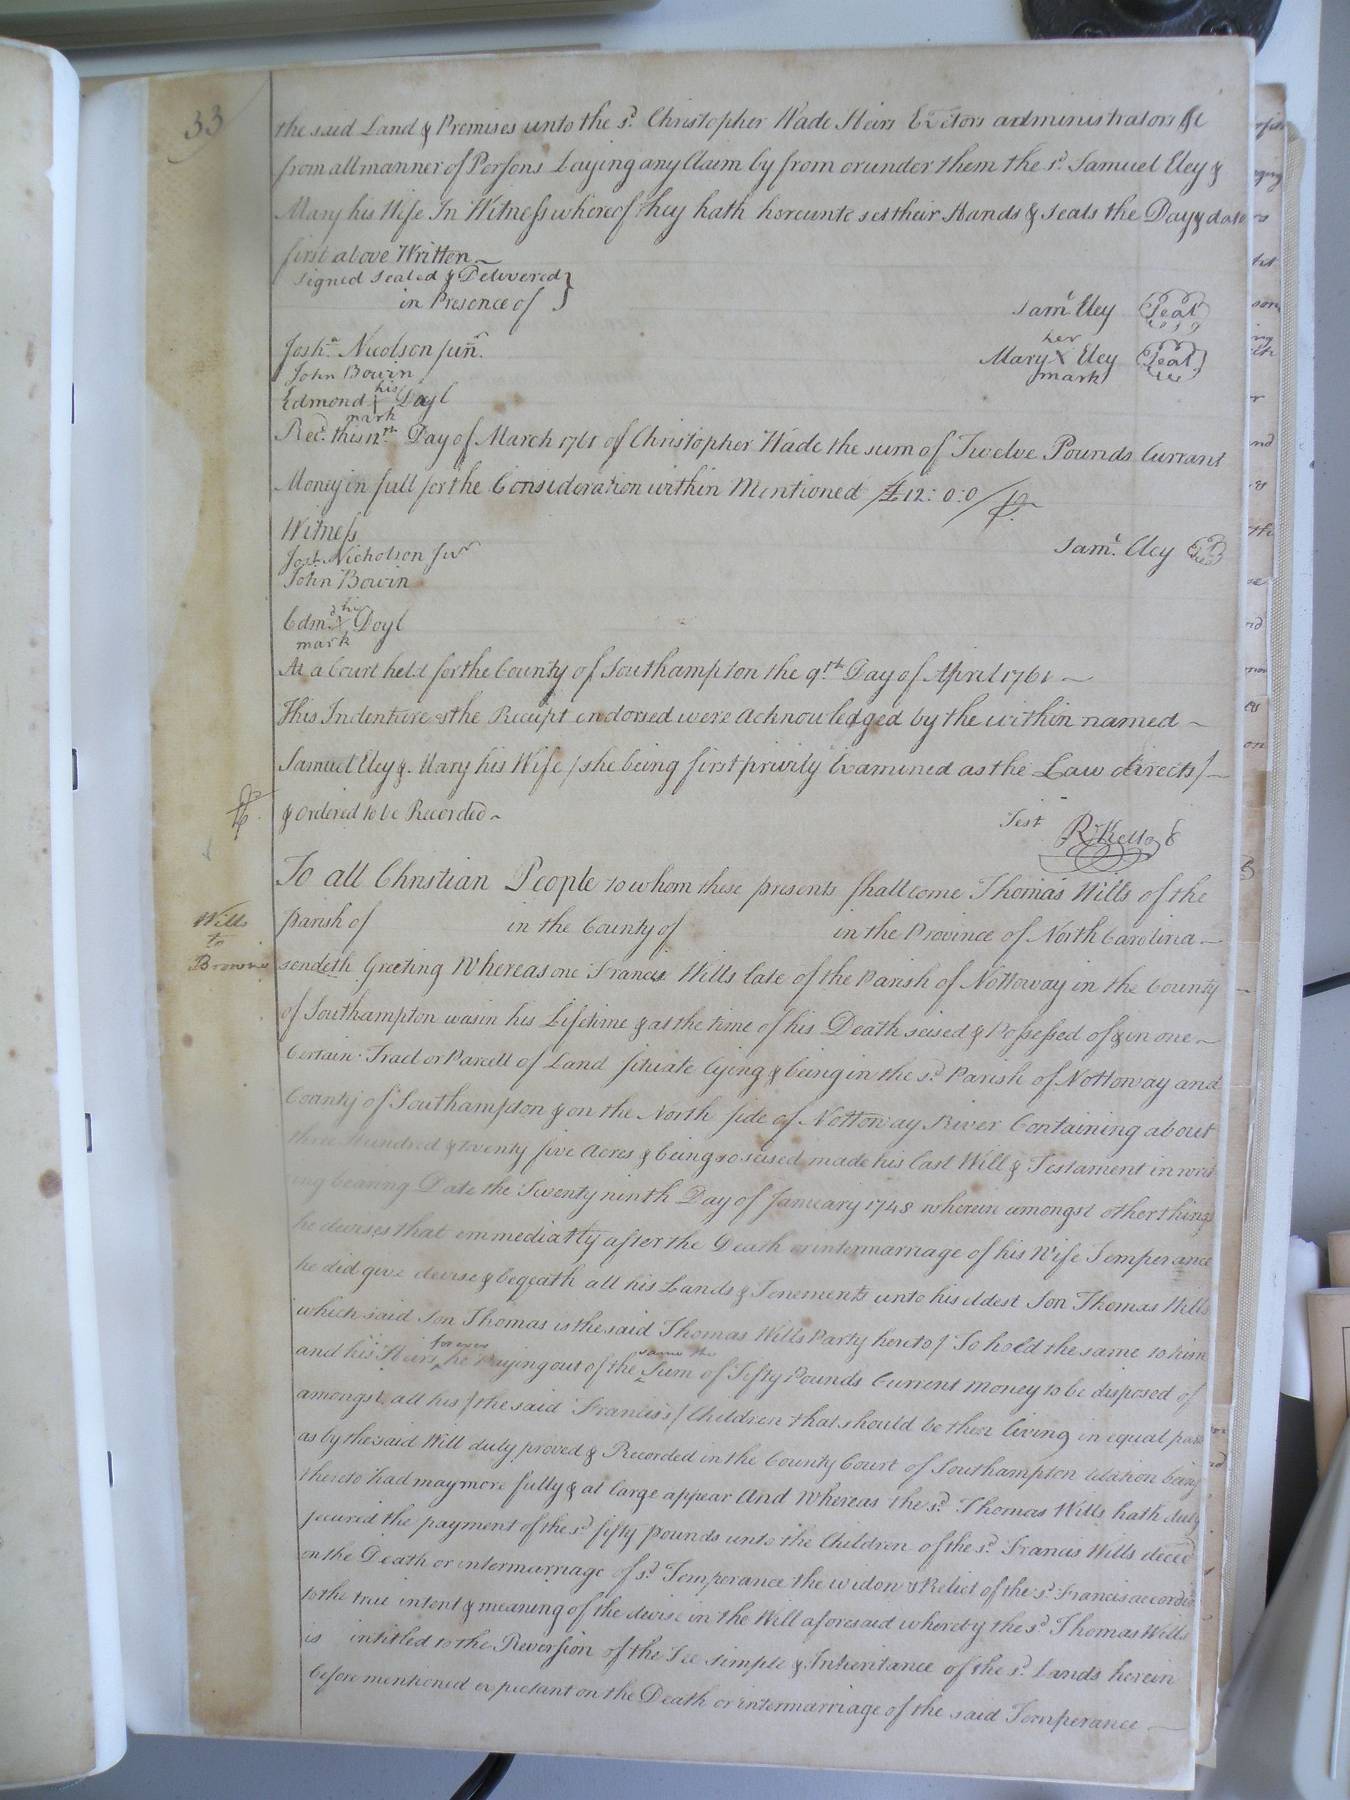 33
the said Land & Premises unto the sd. Christopher Wade Heirs Exctors administrators &c
from all manner of Persons Laying any Claim by from or under them the sd. Samuel Eley &
Mary his Wife In Witness whereof they hath hereunto set their Hands & Seals the Day & date
first above Written
signed sealed & Delivered }
in Presence of
Saml Eley Seal
her
Mary X Eley Seal
mark
Josha. Nicolson junr.
John Bowin
his
Edmond Doyl
mark
Recd. this 12th Day of March 1761 of Christopher Wade the sum of Twelve Pounds Currant
Money in full for the Consideration within Mentioned £12: 0: 0
Witness
Josh. Nicholson Junr
Saml. Eley
John Bowin
his
Edmd X Doyl
mark
At a Court held for the County of Southampton the 9th Day of April 1761
This Indenture & the Receipt endorsed were acknowledged by the within named
Samuel Eley & Mary his Wife / she being first privily Examined as the Law directs /
& ordered to be Recorded
Test R. Kello
To all Christian People to whom these presents shall come Thomas Wills of the
Wills
to
Brown
parish of in the County of in the Province of North Carolina
sendeth Greeting Whereas one Francis Wills late of the Parish of Nottoway in the County
of Southampton was in his Lifetime & at the time of his Death seised & Possessed of & in one
Certain Tract or Parcell of Land situate lying & being in the sd. Parish of Nottoway and
County of Southampton & on the North side of Nottoway River Containing about
three Hundred & twenty five Acres & being so seised made his last Will & Testament in writ
ing bearing Date the Twenty ninth Day of January 1748 wherein amongst other things
he devises that immediatly after the Death or intermarriage of his Wife Temperance
he did give devise & beqeath all his Lands & Tenements unto his eldest Son Thomas Wills
which said Son Thomas is the said Thomas Wills Party hereto / To hold the same to him
forever same the
and his Heirs he Paying out of the Sum of Fifty Pounds Current money to be disposed of
amongst all his / the said Francis's / Children that should be then living in equal parts
as by the said Will duly proved & Recorded in the County Court of Southampton relation being
thereto had may more fully & at large appear And Whereas the sd. Thomas Wills hath duly
secured the payment of the sd fifty pounds unto the Children of the sd. Francis Wills decd
on the Death or intermarriage of sd. Temperance the widow & Relict of the sd. Francis according
to the true intent & meaning of the devise in the Will aforesaid whereby the sd Thomas Wills
is intitled to the Reversion of the Fee simple & Inheritance of the sd. Lands herein
before mentioned expectant on the Death or intermarriage of the said Temperance